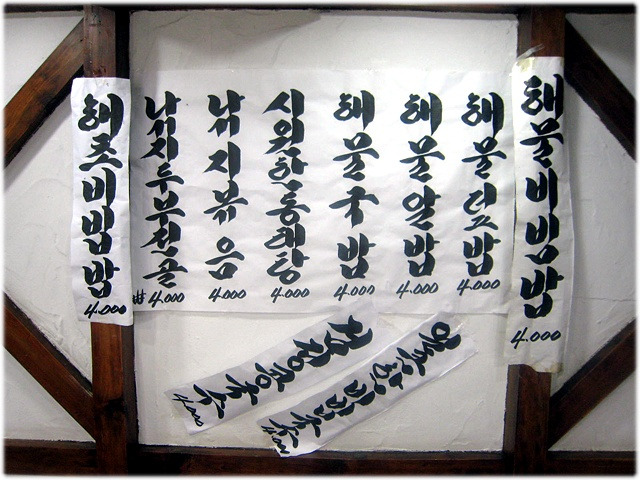 해초비빔밥
4.000
낚지두부전골
# 4.000
낚지볶음
4.000
시원한동태탕
4.000
해물국밥
4.000
해물알밥
4.000
해물덮밥
4.000
해물비빔밥
4.000
검정콩국수
4.000
얼큰한 비빔국수
4.000